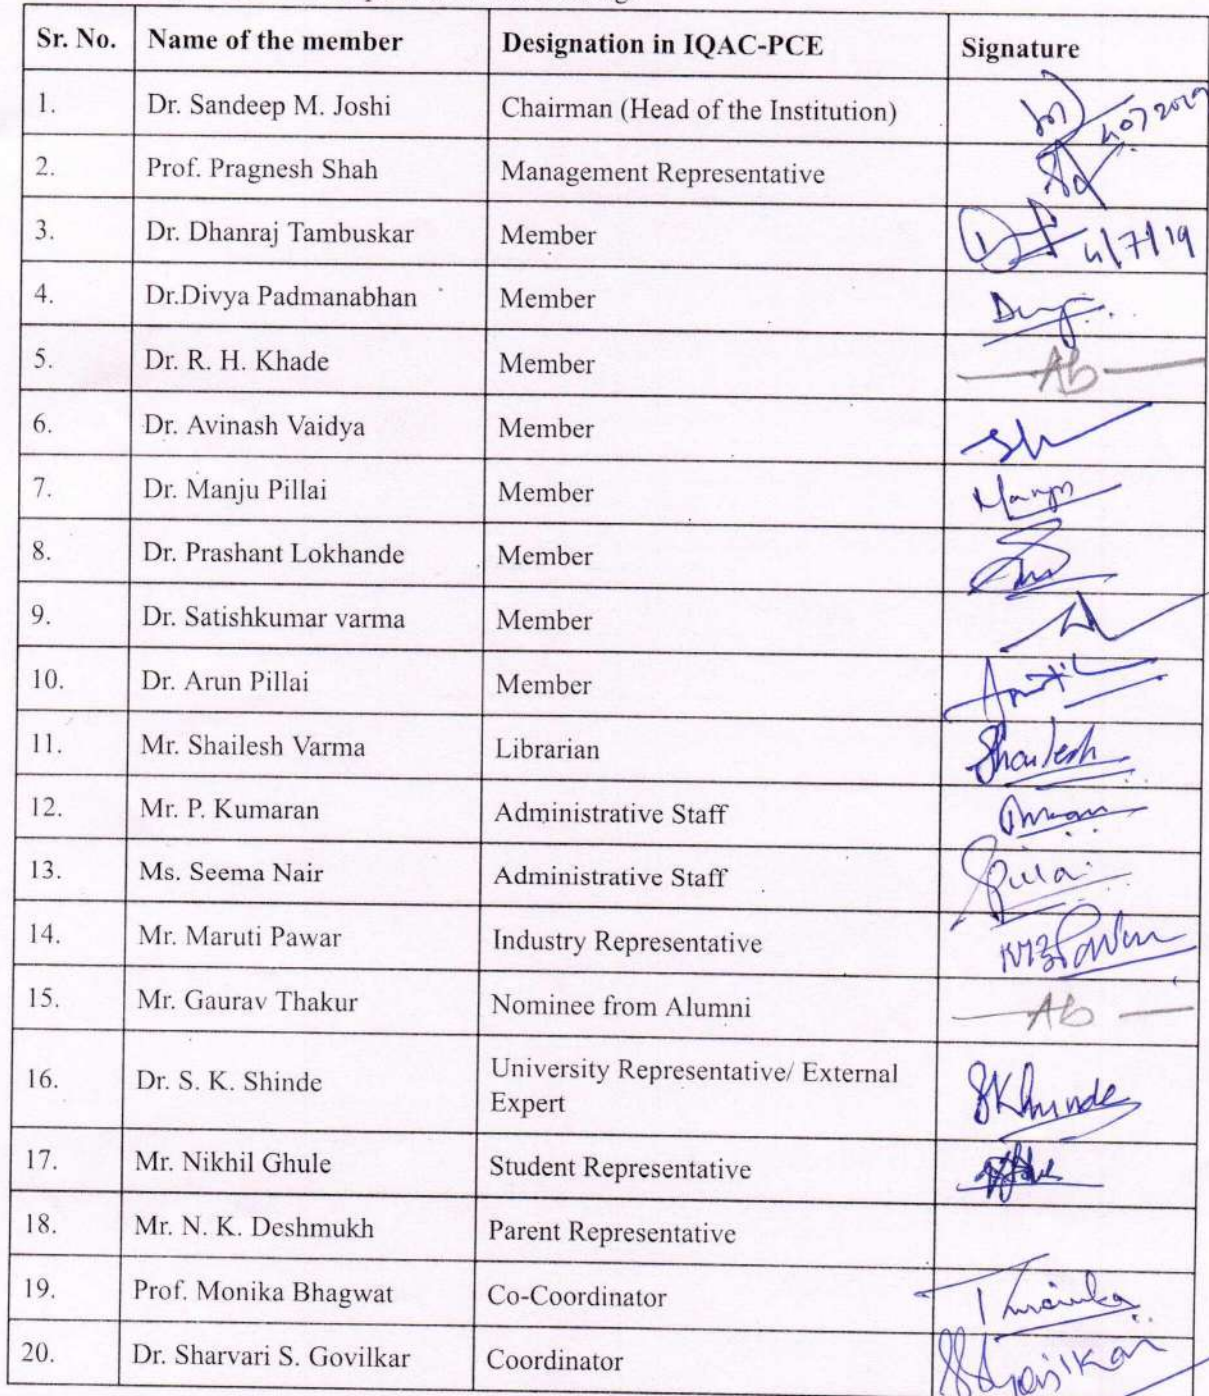 Sr. No. Name of the member Designation in IQAC-PCE Signature
1. Dr. Sandeep M. Joshi Chairman (Head of the Institution)
2. Prof. Pragnesh Shah Management Representative
3. Dr. Dhanraj Tambuskar Member 4/7/19
4. Dr.Divya Padmanabhan Member
5. Dr. R. H. Khade Member Ab
6. Dr. Avinash Vaidya Member
7. Dr. Manju Pillai Member
8. Dr. Prashant Lokhande Member
9. Dr. Satishkumar varma Member
10. Dr. Arun Pillai Member
11. Mr. Shailesh Varma Librarian Shailesh
12. Mr. P. Kumaran Administrative Staff
13. Ms. Seema Nair Administrative Staff
14. Mr. Maruti Pawar Industry Representative
15. Mr. Gaurav Thakur Nominee from Alumni Ab
16. Dr. S. K. Shinde University Representative/ External
Expert SKShinde
17. Mr. Nikhil Ghule Student Representative
18. Mr. N. K. Deshmukh Parent Representative
19. Prof. Monika Bhagwat Co-Coordinator
20. Dr. Sharvari S. Govilkar Coordinator